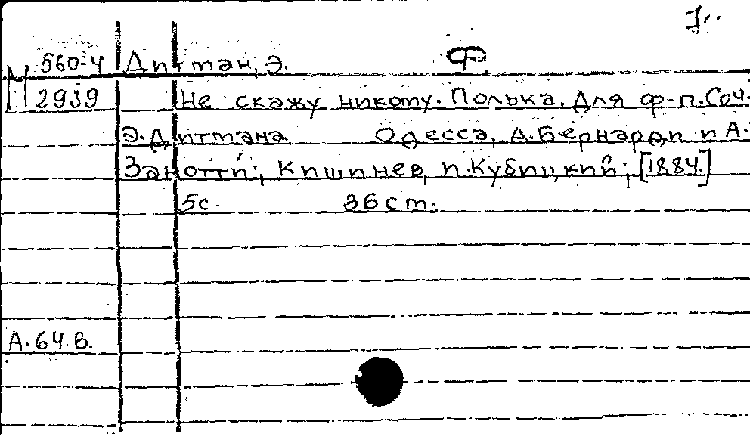 560-4 Дитман, Э. Ф.
М 2939 Не скажу никому. Полька. Для ф-п. Соч.
Э. Дитмана Одесса, А. Бернарди и А.
Занотти; Кишинев, П. Кубицкий; [1884.]
5с. 36 ст.
А. 64 в.